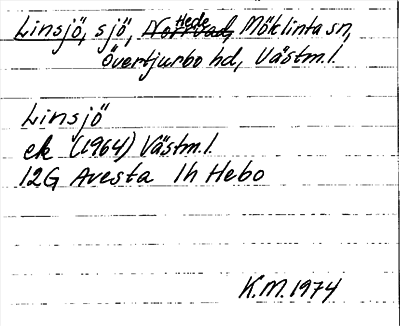 Linsjö, sjö, Hede Möklinta sn,
Övertjurbo hd, Västm.l.
Linsjö
ek (1964) Västm.l.
12G Avesta 1h Hebo
K.M. 1974